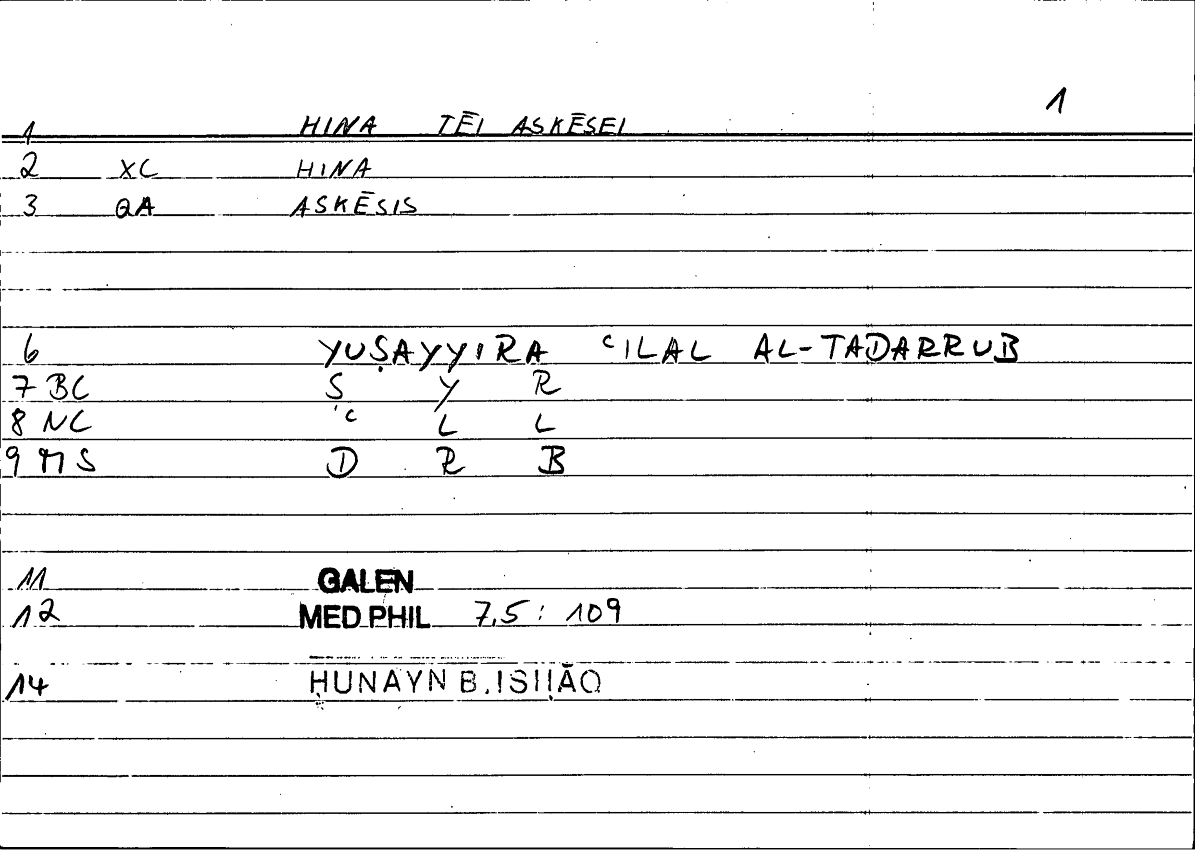 1
1 HINA TĒI ASKĒSEI
2 XC HINA
3 QA ASKĒSIS
6 YUṢAYYIRA ʿILAL AL-TADARRUB
7 BC S Y R
8 NC ʿ L L
9 MS D R B
11 GALEN
12 MED PHIL 7,5: 109
14 ḤUNAYN B. ISḤĀQ